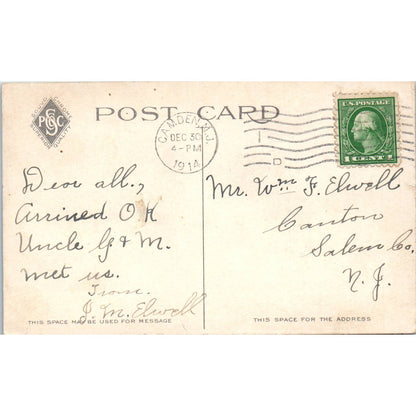 POST CARD
CAMDEN, N.J.
DEC 30
4-PM
1914
U.S. POSTAGE
1 CENT 1
Dear all,
Arrived O.K
Uncle G & M.
met us.
From
J. M. Elwell
Mr. Wm F. Elwell
Canton
Salem Co.
N. J.
THIS SPACE MAY BE USED FOR MESSAGE
THIS SPACE FOR THE ADDRESS